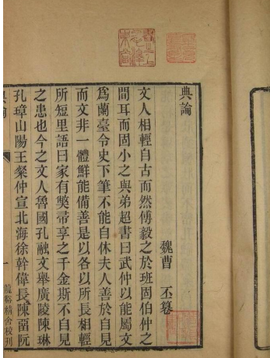 典論
魏曹 丕 篹
文人相輕自古而然傅毅之於班固伯仲之
間耳而固小之與弟超書曰武仲以能屬文
爲蘭臺令史下筆不能自休夫人善於自見
而文非一體鮮能備善是以各以所長相輕
所短里語曰家有獘帚享之千金斯不自見
之患也今之文人魯國孔融文舉廣陵陳琳
孔璋山陽王粲仲宣北海徐幹偉長陳畱阮
典論
一